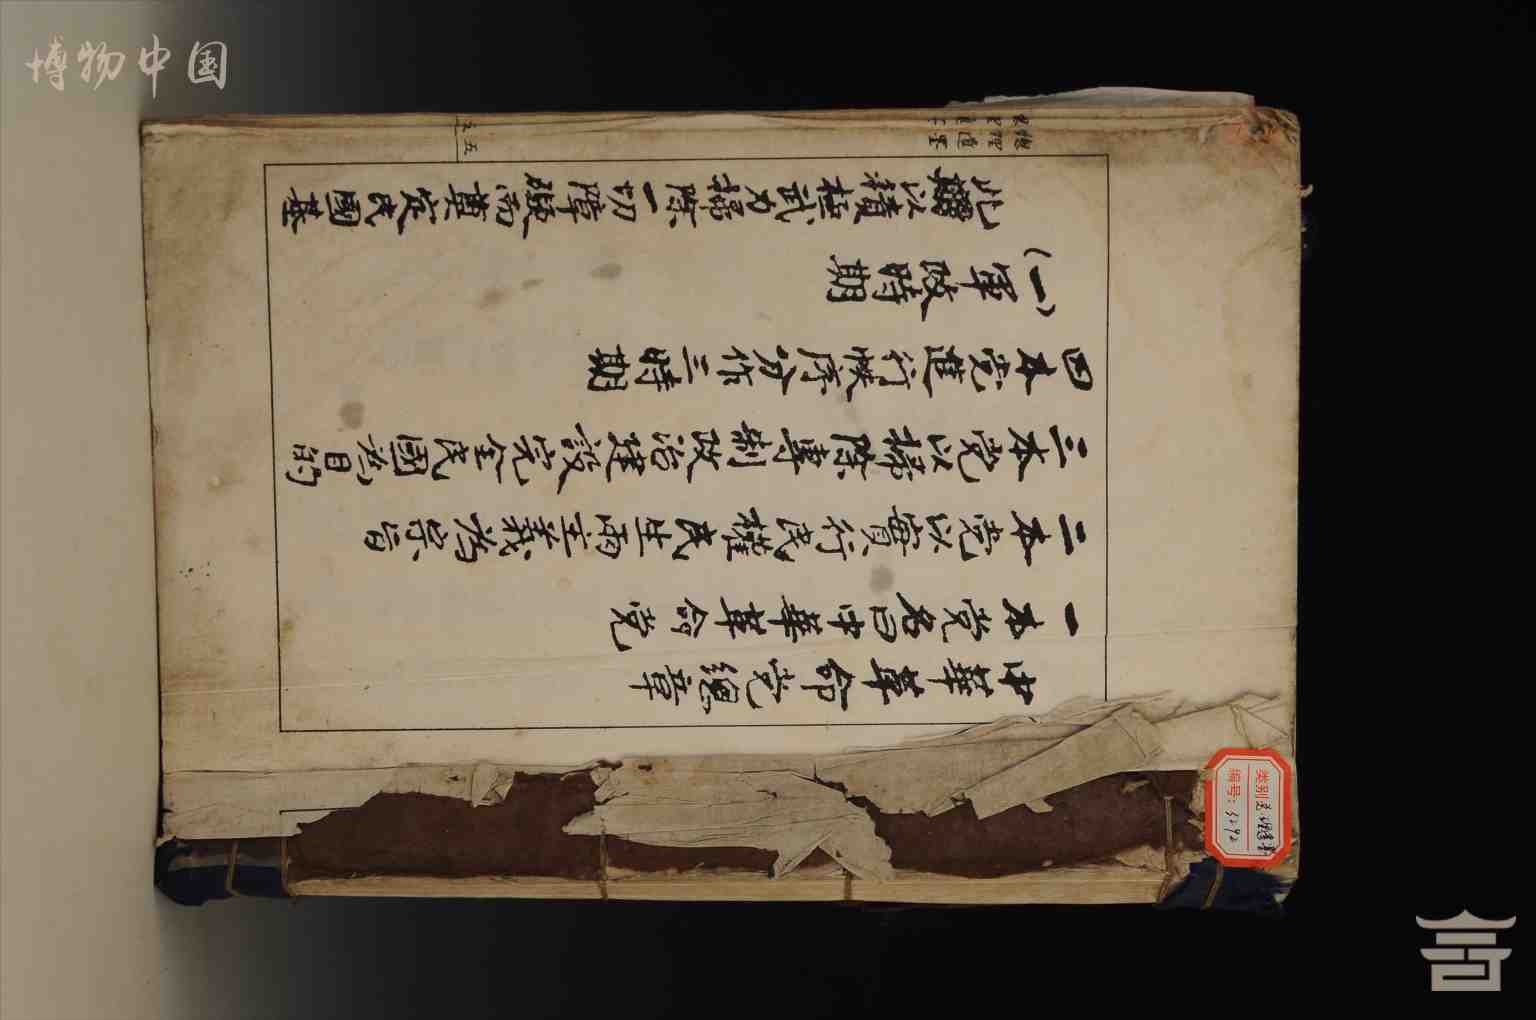 博物中国
中華革命党總章
一本党名曰中華革命党
二本党以實行民權民生兩主義為宗旨
三本党以掃除專制政治建設完全民國為目的
四本党進行秩序分作三時期
(一)軍政時期
此期以積極武力掃除一切障礙而奠定民國基
總理遺墨
五
类别
编号: